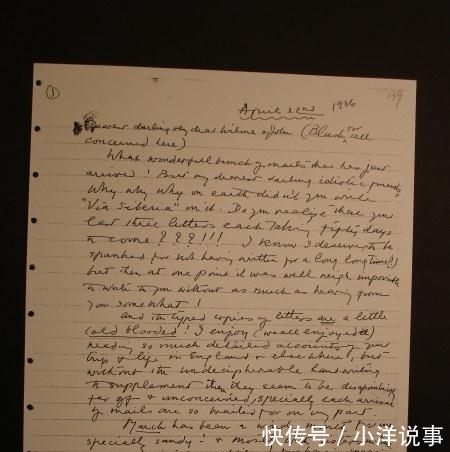 ①
139
April 22nd 1936
Dearest darling my dear Wilma & John (Blush for all
concerned here)
What wonderful bunch of mails that has just
arrived! But my dearest darling idiotic friends
Why why why on earth didn't you write
"Via Siberia" on it. Do you realize that your
last three letters each taking fifty days
to come???!!! I know I deserve to be
spanked for not having written for a long long time(!)
but then at one point it was well neigh impossible
to write to you without as much as hearing from
you somewhat!
And the typed copies of letters are a little
cold blooded! I enjoy (we all enjoyed it)
reading so much detailed accounts of your
trip & life in England & elsewhere, but
without the undecipherable handwriting
to supplement them they seem to be disappointing
far off & unconcerned, specially each arrival
of mails are so waited for on my part.
March has been a
specially sandy! &
快传号 / 小洋说事